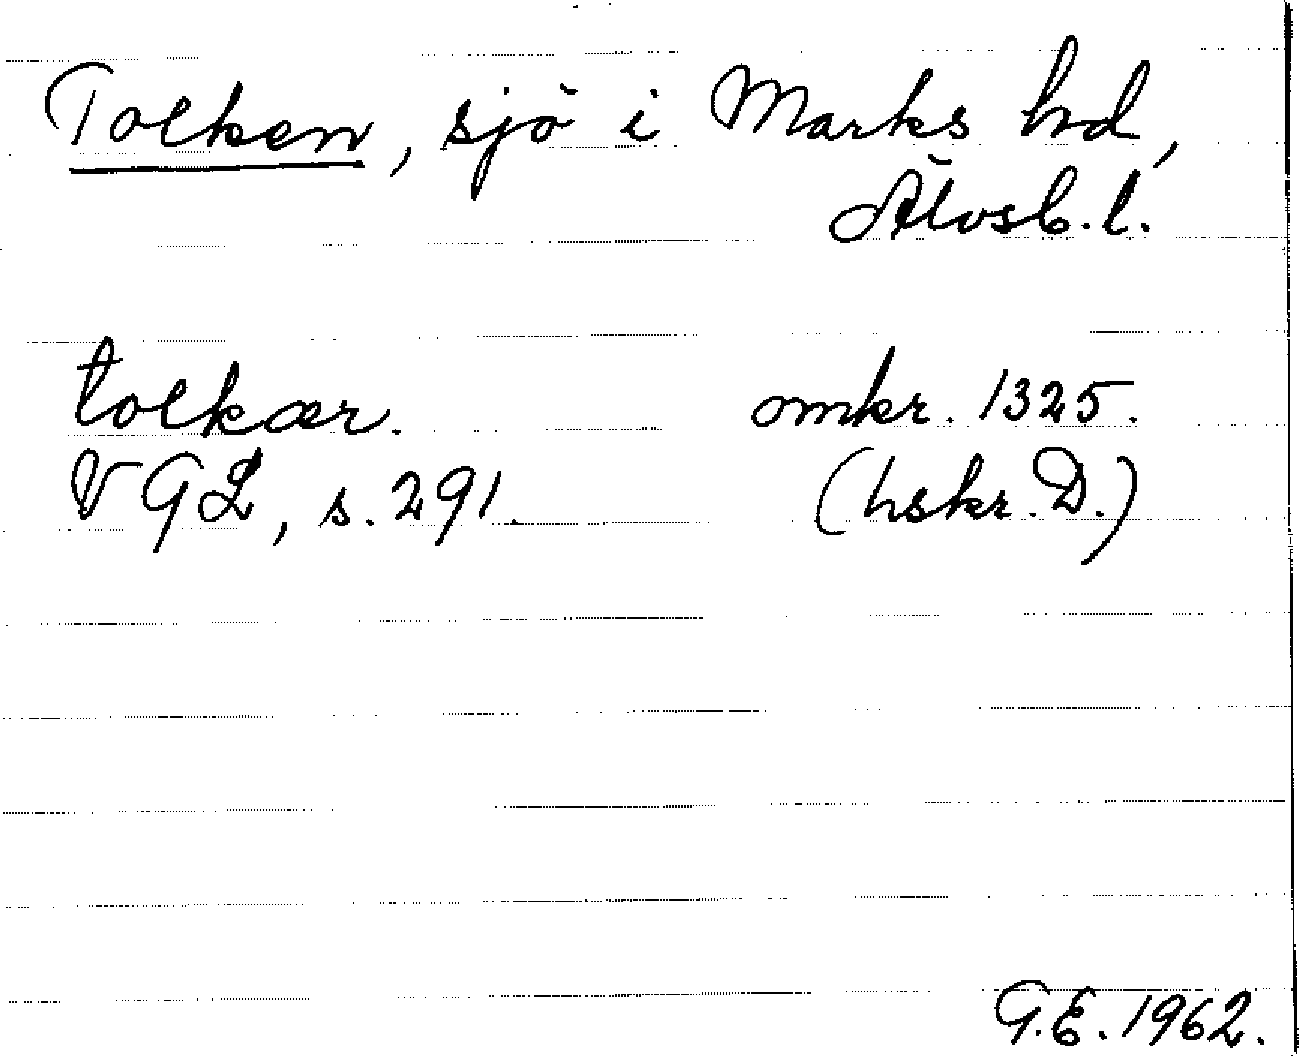 Tolken, sjö i Marks hd,
Älvsb. l.
tolkær. omkr. 1325.
VGL, s. 291. (hskr. D.)
G.E. 1962.